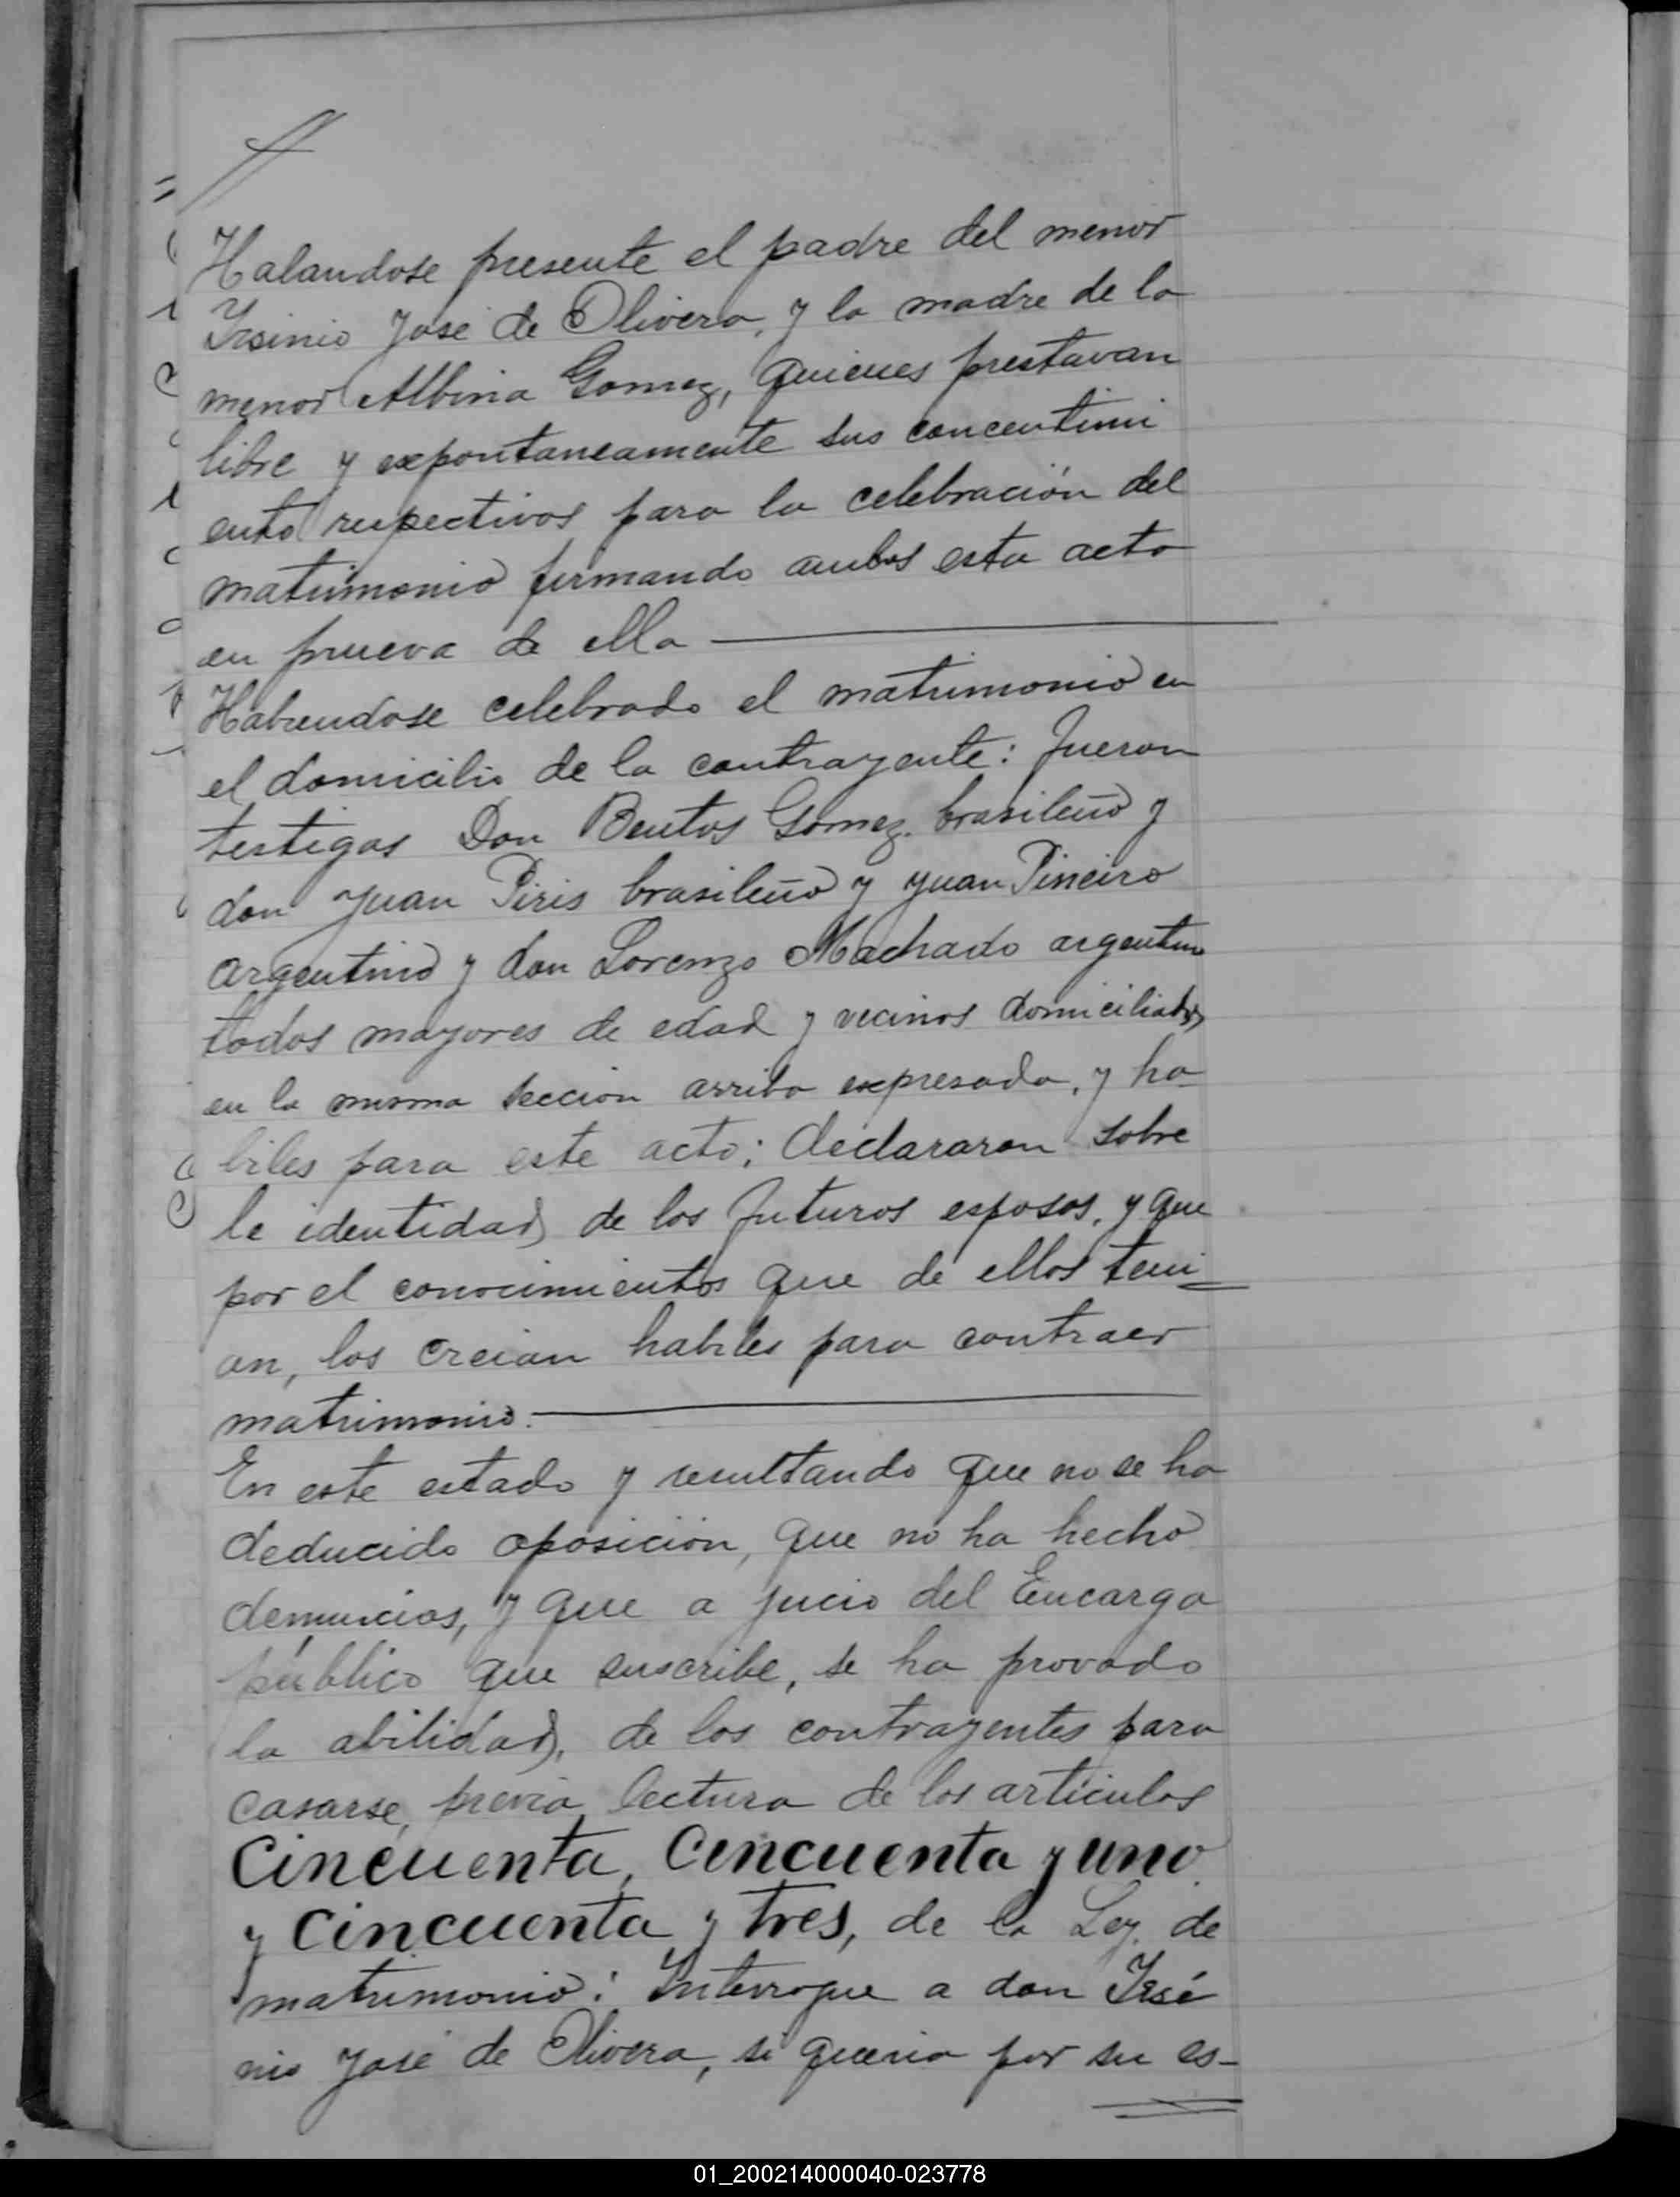 Halandose presente el padre del menor
Irsinio José de Olivera, y la madre de la
menor Albina Gomez, quienes prestavan
libre y expontaneamente sus concentimi
ento respectivos para la celebración del
matrimonio firmando ambos esta acta
en prueva de ella
Habiendose celebrado el matrimonio en
el domicilio de la contrayente: fueron
testigos Don Bentos Gomez. brasileño y
don Juan Piris brasileño y Juan Pineiro
argentino y don Lorenzo Machado argentino
todos mayores de edad y vecinos domiciliados
en la misma seccion arriba expresada, y ha
biles para este acto; declararon sobre
le identidad de los futuros esposos, y que
por el conocimientos que de ellos teni
an, los creian habiles para contraer
matrimonio.
En este estado y resultando que no se ha
deducido oposición, que no ha hecho
denuncias, y que a jucio del Encargo
público que suscribe, se ha provado
la abilidad, de los contrayentes para
casarse, previa lectura de los artículos
Cincuenta, Cincuenta y uno
y Cincuenta y tres, de la Ley. de
matrimonio: Interrogue a don Irsé
nio José de Olivera, si queria por su es-
01_200214000040-023778